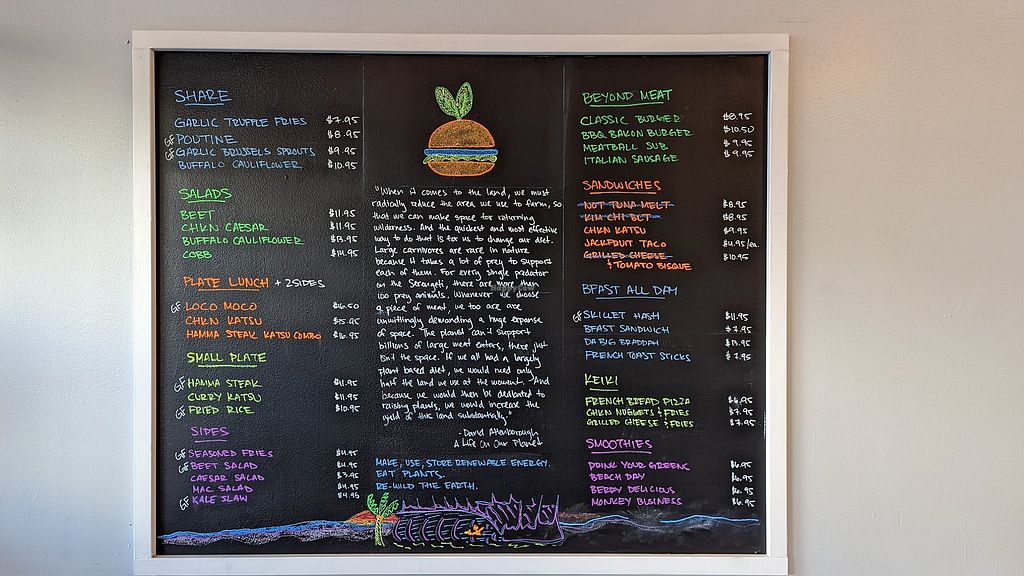 SHARE
GARLIC TRUFFLE FRIES $7.95
GF POUTINE $8.95
GF GARLIC BRUSSELS SPROUTS $9.95
BUFFALO CAULIFLOWER $10.95
SALADS
BEET $11.95
CHKN CAESAR $11.95
BUFFALO CAULIFLOWER $13.95
COBB $14.95
PLATE LUNCH + 2 SIDES
GF LOCO MOCO $16.50
CHKN KATSU $15.95
HAMMA STEAK KATSU COMBO $16.95
SMALL PLATE
GF HAMMA STEAK $11.95
CURRY KATSU $11.95
GF FRIED RICE $10.95
SIDES
GF SEASONED FRIES $4.95
GF BEET SALAD $4.95
CAESAR SALAD $3.95
MAC SALAD $4.95
GF KALE SLAW $4.95
"When it comes to the land, we must
radically reduce the area we use to farm, so
that we can make space for returning
wilderness. And the quickest and most effective
way to do that is for us to change our diet.
Large carnivores are rare in nature
because it takes a lot of prey to support
each of them. For every single predator
on the Serengeti, there are more than
100 prey animals. Whenever we choose
a piece of meat, we too are
unwittingly demanding a huge expanse
of space. The planet can't support
billions of large meat eaters, there just
isn't the space. If we all had a largely
plant based diet, we would need only
half the land we use at the moment. And
because we would then be dedicated to
raising plants, we would increase the
yield of this land substantially."
- David Attenborough
A Life On Our Planet
MAKE, USE, STORE RENEWABLE ENERGY.
EAT PLANTS.
RE-WILD THE EARTH.
BEYOND MEAT
CLASSIC BURGER $8.95
BBQ BACON BURGER $10.50
MEATBALL SUB $9.95
ITALIAN SAUSAGE $9.95
SANDWICHES
NOT TUNA MELT $8.95
KIM CHI BLT $8.95
CHKN KATSU $9.95
JACKFRUIT TACO $4.95/ea.
GRILLED CHEESE $10.95
& TOMATO BISQUE
BFAST ALL DAY
GF SKILLET HASH $11.95
BFAST SANDWICH $7.95
DA BIG BRADDAH $13.95
FRENCH TOAST STICKS $7.95
KEIKI
FRENCH BREAD PIZZA $6.95
CHKN NUGGETS & FRIES $7.95
GRILLED CHEESE & FRIES $7.95
SMOOTHIES
DRINK YOUR GREENS $6.95
BEACH DAY $6.95
BERRY DELICIOUS $6.95
MONKEY BUSINESS $6.95